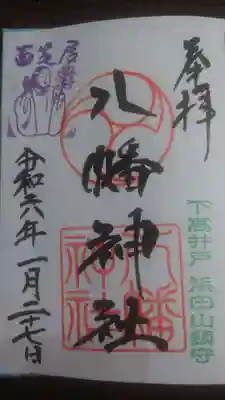 奉拝
下高井戸 浜田山鎮守
八幡神社
八幡神社
令和六年一月二十七日